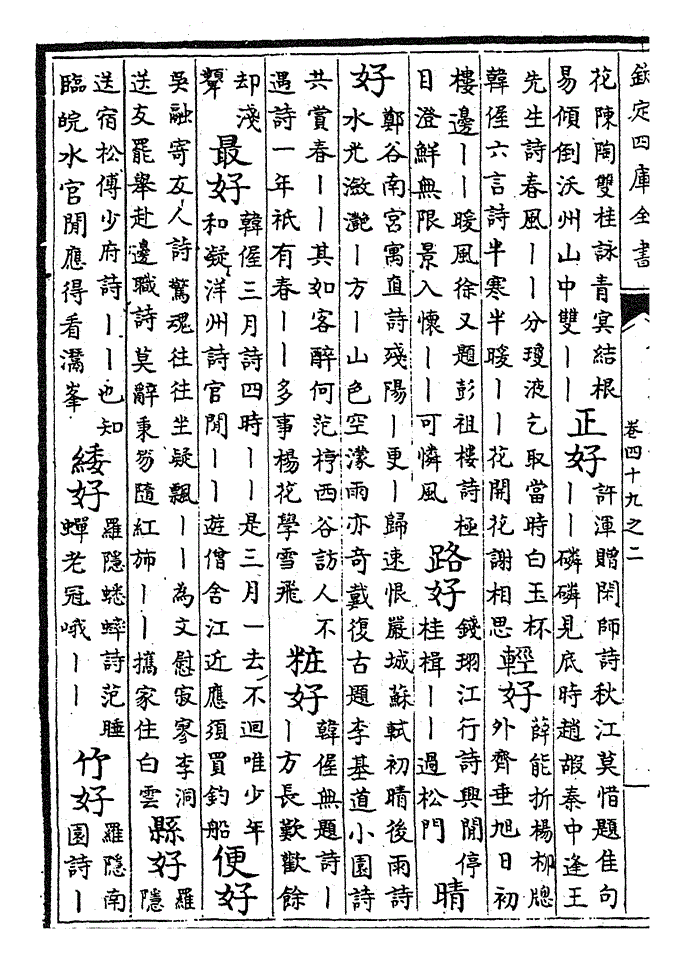 欽定四庫全書
卷四十九之二
花陳陶雙桂詠青冥結根
易傾倒沃州山中雙丨丨
正好
許渾贈閑師詩秋江莫惜題佳句
丨丨磷磷見底時趙嘏秦中逢王
先生詩春風丨丨分瓊液乞取當時白玉杯
韓偓六言詩半寒半暖丨丨花開花謝相思
輕好
薛能折楊柳牕
外齊垂旭日初
樓邊丨丨暖風徐又題彭祖樓詩極
日澄鮮無限景入懷丨丨可憐風
路好
錢珝江行詩興閒停
桂楫丨丨過松門
晴
好
鄭谷南宮寓直詩殘陽丨更丨歸速恨嚴城蘇軾初晴後雨詩
水光瀲灧丨方丨山色空濛雨亦奇戴復古題李基道小園詩
共賞春丨丨其如客醉何范梈西谷訪人不
遇詩一年祇有春丨丨多事楊花學雪飛
粧好
韓偓無題詩丨
丨方長歎歡餘
却淺
顰
最好
韓偓三月詩四時丨丨是三月一去不迴唯少年
和凝洋州詩官閒丨丨遊僧舍江近應須買釣船
便好
吳融寄友人詩驚魂往往坐疑飄丨丨為文慰寂寥李洞
送友罷舉赴邊職詩莫辭秉笏隨紅斾丨丨攜家住白雲
縣好
羅
隱
送宿松傅少府詩丨丨也知
臨皖水官閒應得看灊峯
緌好
羅隱蟋蟀詩范睡
蟬老冠峨丨丨
竹好
羅隱南
園詩丨